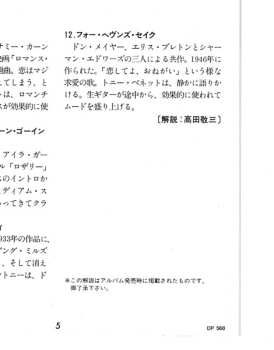 サミー・カーン
画「ロマンス・
曲。恋はマジ
てしまう、と
は、ロマンチ
が効果的に使
ーン・ゴーイン
アイラ・ガー
ル「ロザリー」
のイントロか
ディアム・ス
ってきてクラ
933年の作品に、
ング・ミルズ
、そして消え
トニーは、ド
12.フォー・ヘヴンズ・セイク
ドン・メイヤー、エリス・ブレトンとシャー
マン・エドワーズの三人による共作。1946年に
作られた。「恋してよ、おねがい」という様な
求愛の歌。トニー・ベネットは、静かに語りか
ける。生ギターが途中から、効果的に使われて
ムードを盛り上げる。
〔解説：高田敬三〕
※この解説はアルバム発売時に掲載されたものです。
御了承下さい。
5
DP 560